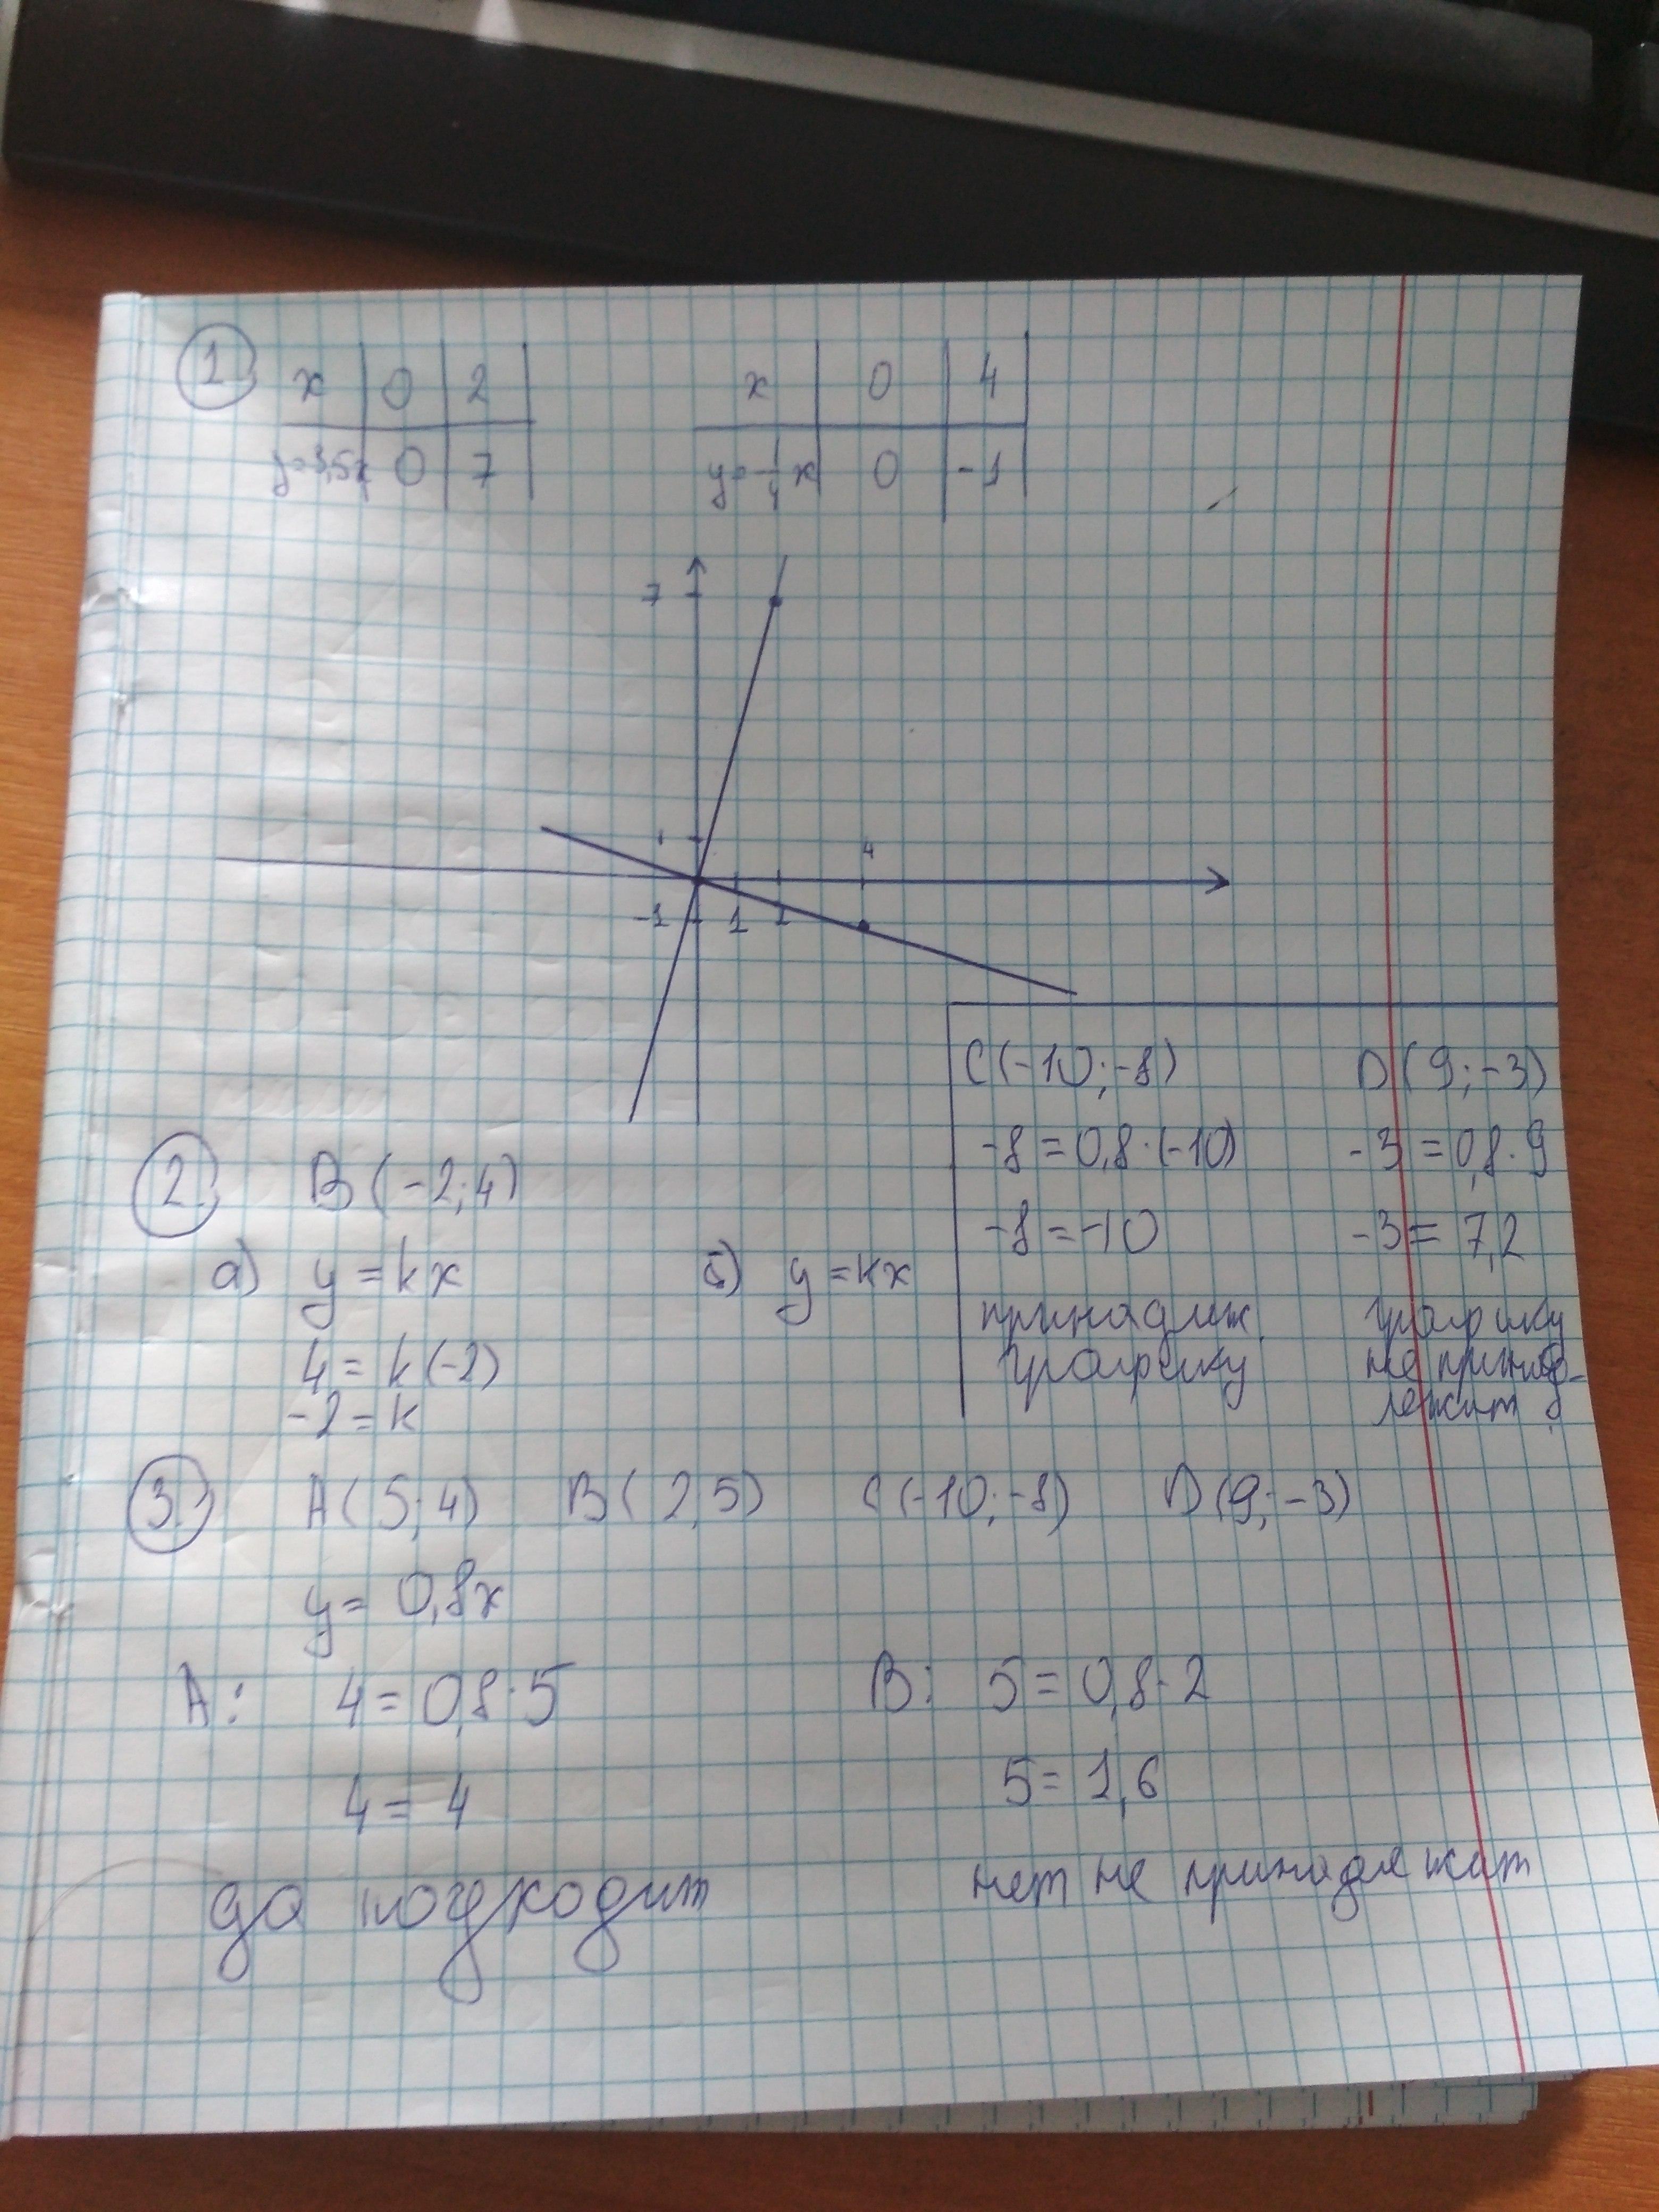 1. x 0 2 x 0 4
y=3,5x 0 7 y=-1/4 x 0 -1
7
1 4
-1 1 2
C(-10;-8) D(9;-3)
-8=0,8·(-10) -3=0,8·9
-8=-10 -3=7,2
принадлеж. графику
графику не принад-
лежит
2. B(-2;4)
а) y=kx б) y=kx
4=k(-2)
-2=k
3. A(5;4) B(2;5) C(-10;-8) D(9;-3)
y=0,8x
A: 4=0,8·5 B: 5=0,8·2
4=4 5=1,6
да подходит нет не принадлежит